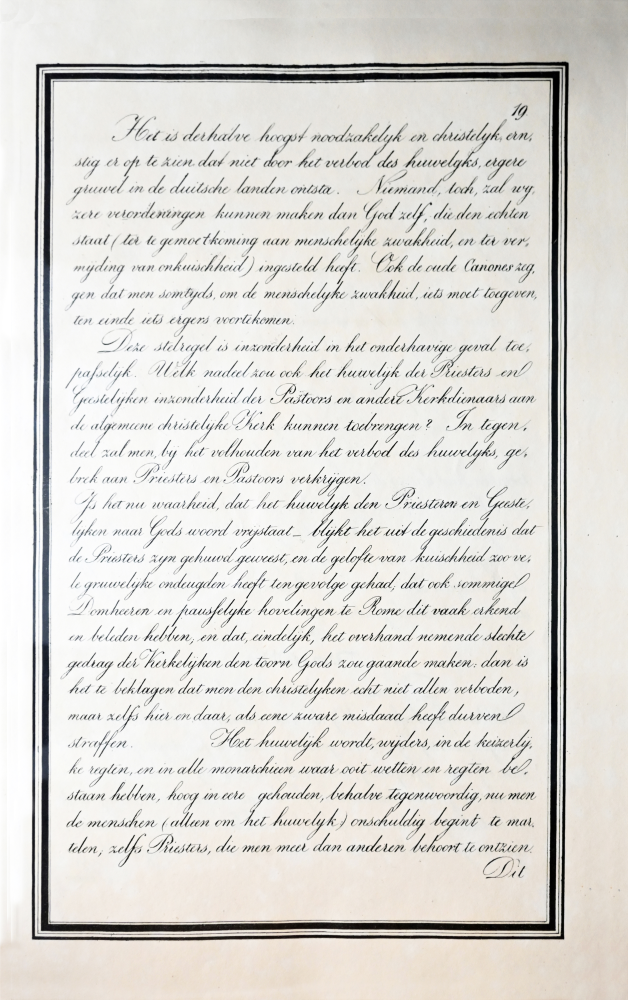 19
Het is derhalve hoogst noodzakelyk en christelyk, ern,
stig er op te zien dat niet door het verbod des huwelyks, ergere
gruwel in de duitsche landen ontsta. Niemand, toch, zal wy,
zere verordeningen kunnen maken dan God zelf, die den echten
staat (ter te gemoetkoming aan menschelyke zwakheid, en ter ver,
myding van onkuischheid) ingesteld heeft. Ook de oude Canones zeg,
gen dat men somtyds, om de menschelyke zwakheid, iets moet toegeven,
ten einde iets ergers voortekomen.
Deze stelregel is inzonderheid in het onderhavige geval toe,
passelyk. Welk nadeel zou ook het huwelyk der Priesters en
Geestelyken inzonderheid der Pastoors en andere Kerkdienaars aan
de algemeene christelyke Kerk kunnen toebrengen? In tegen,
deel zal men, by het volhouden van het verbod des huwelyks, ge,
brek aan Priesters en Pastoors verkrygen.
Is het nu waarheid, dat het huwelyk den Priesteren en Geeste,
lyken naar Gods woord vrystaat_ blykt het uit de geschiedenis dat
de Priesters zyn gehuwd geweest, en de gelofte van kuischheid zoo ve,
le gruwelyke ondeugden heeft ten gevolge gehad, dat ook sommige
Domheeren en pausselyke hovelingen te Rome dit vaak erkend
en beleden hebben, en dat, eindelyk, het overhand nemende slechte
gedrag der Kerkelyken den toorn Gods zou gaande maken: dan is
het te beklagen dat men den christelyken echt niet allen verboden,
maar zelfs hier en daar, als eene zware misdaad heeft durven
straffen. Het huwelyk wordt, wyders, in de keizerly,
ke regten, en in alle monarchieen waar ooit wetten en regten be,
staan hebben, hoog in eere gehouden, behalve tegenwoordig, nu men
de menschen (alleen om het huwelyk) onschuldig begint te mar,
telen, zelfs Priesters, die men meer dan anderen behoort te ontzien.
Dit